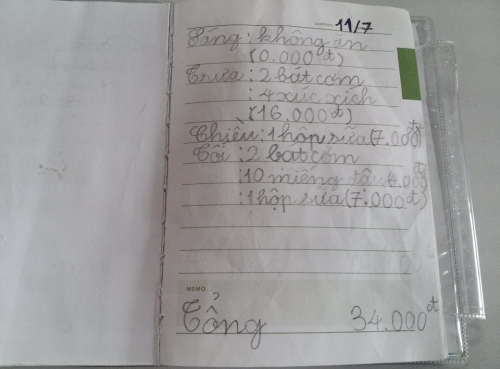 11/7
Sáng: không ăn
(0.000đ)
Trưa: 2 bát cơm
: 4 xúc xích
(16.000đ)
Chiều: 1 hộp sữa (7.000đ)
Tối: 2 bat cơm
: 10 miếng đậu 4.000đ
: 1 hộp sữa (7.000đ)
MEMO
Tổng 34.000đ